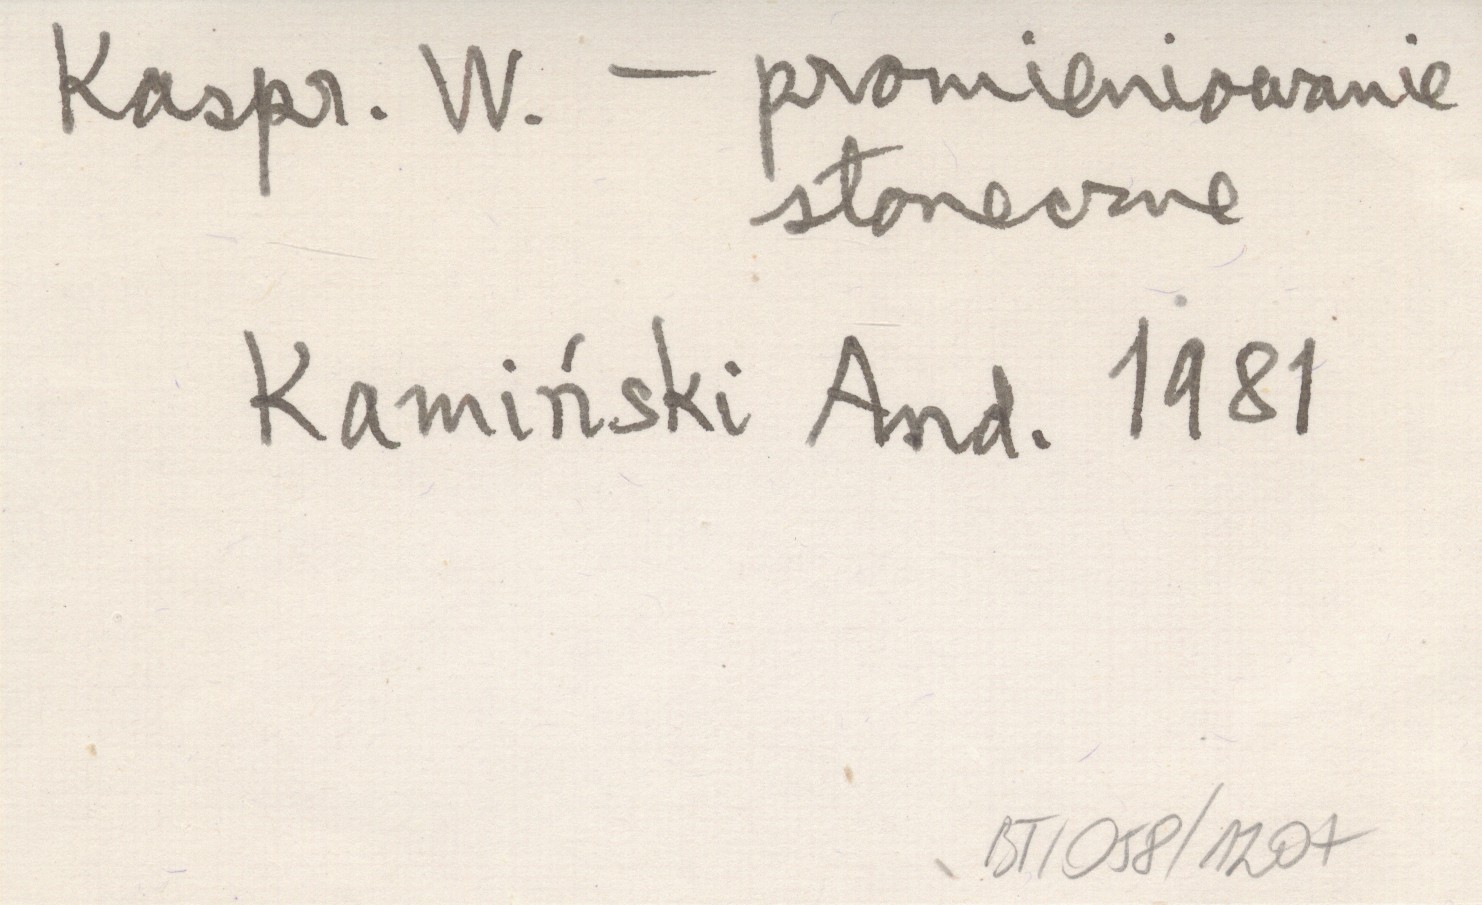 Kaspr. W. — promieniowanie
słoneczne
Kamiński And. 1981
BT/058/1207